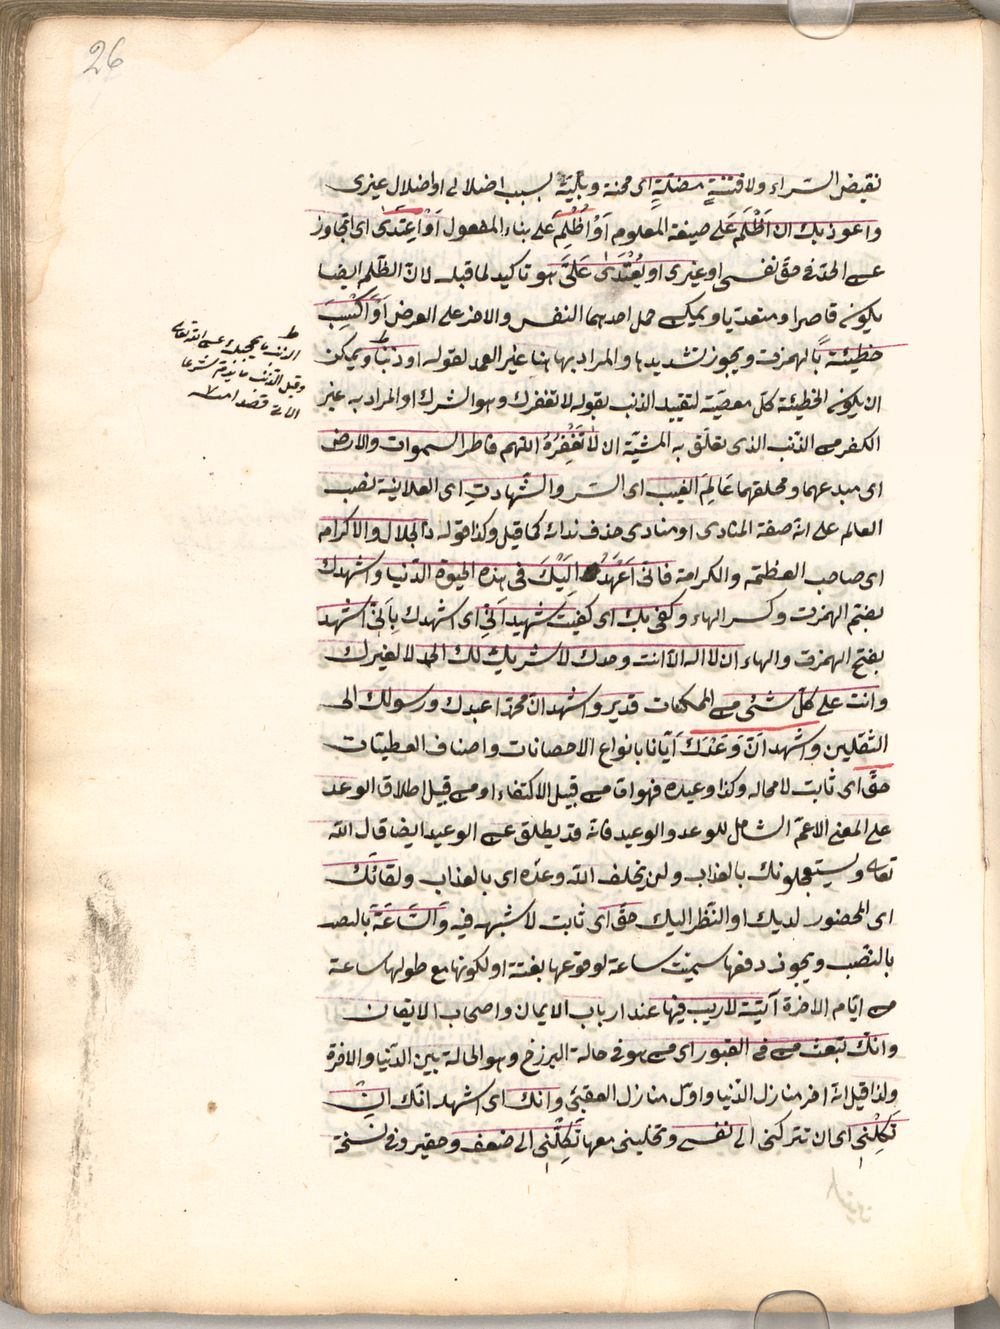 26
نقيض السراء ولا فتنةٍ مضلةٍ اى محنة وبليّة بسبب اضلالى او اضلال غيرى
واعوذ بك ان اَظْلَمَ على صيغة المعلوم اَوْ اُظْلِمَ على بناء المفعول اَوْ اَعتدى اى اتجاوز
عن الحدّ فى حقّ نفسى او غيرى او يُعْتَدىٰ عَلَىَّ هو تاكيد لما قبله لانّ الظلم ايضا
يكون قاصرا ومتعديا ويمكن حمل احدهما النفس والاخر على العرض اَوْ اَكْسِبَ
خطيئة بالهمزت ويجوز تشديدها والمراد بها هنا غير العمد لقوله او ذنبًا ويمكن
ان يكون الخطيئة كلّ معصيّة لتقييد الذنب بقوله لا تغفرك وهو الشرك او المراد به غير
الكفر من الذنب الذى تعلّق به المشيّة ان لا تَغْفِرُهُ اللّهم فاطر السموات والارض
اى مبدعهما ومخلقهما عَالِمَ الغيب اى السّر والشّهادتِ اى العلانية نصب
العالم على انّه صفة المنادى او منادى حذف ندائه كما قيل وكذا قوله ذا الجلال والاكرام
اى صاحب العظمة والكرامة فانّى اَعْهَدُ اِلَيْكَ فى هذه الحيوة الدّنيا واشهدك
بضم الهمزت وكسر الهاء وكفى بك اى كفيت شهيدا اَنّى اى اشهدك بِاَنّى اشهد
بفتح الهمزة والهاء ان لا اله الّا انت وحدك لا شريك لك الحمد لا لغيرك
وانت على كلّ شئى من الممكنات قدير واشهد انّ محمّدا عبدك ورسولك الى
الثّقلين واشهد انّ وَعْدَكَ اَيّانا بانواع الاحصانات واصناف العطيّات
حقّ اى ثابت لا محاله وكذا وعيده فهو امّا من قبيل الاكتفاء او من قبيل اطلاق الوعد
على المعنى الاعمّ الشامل للوعد والوعيد فانّه قد يطلق عن الوعيد ايضا قال اللّه
تعالى ويستعجلونك بالعذاب ولن يخلف اللّه وعدَه اى بالعذاب ولقائك
اى الحضور لديك او النّظر اليك حقّ اى ثابت لا شبهه فيه والسّاعَةَ بالمد
بالنصب ويجوز رفعها سميت ساعة لوقوعها بغتة او لكونها مع طولها ساعة
من ايّام الاخرة آتيَة لا ريب فيها عند ارباب الايمان واصحاب الايقان
وانّك تبعث من فى القبور اى من هو فى حالة البرزخ وهو الحالة بين الدّنيا والاخرة
ولذا قيل انّه اخر منازل الدّنيا واوّل منازل العقبىٰ وانك اى اشهد انّك ان
تَكِلْنى اى ان تتركنى الى نفسى وتخلينى معها تَكِلْنى الى ضعف وحقير وفى نسخة
الذنب ما يحجبك عن اللّه تعالى
وقيل الذنب ما يذمّ شرعا